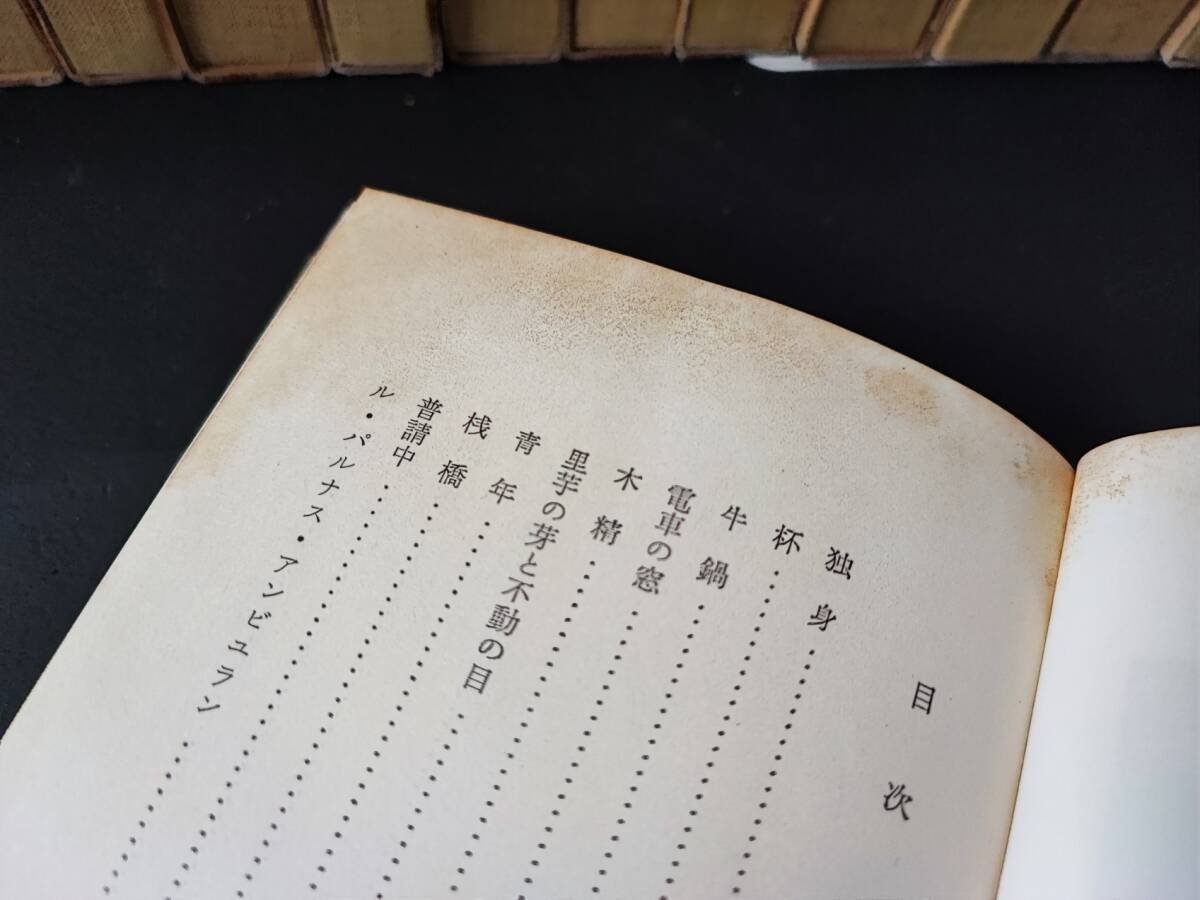 目次
独身
杯
牛鍋
電車の窓
木精
里芋の芽と不動の目
青年
桟橋
普請中
ル・パルナス・アンビュラン